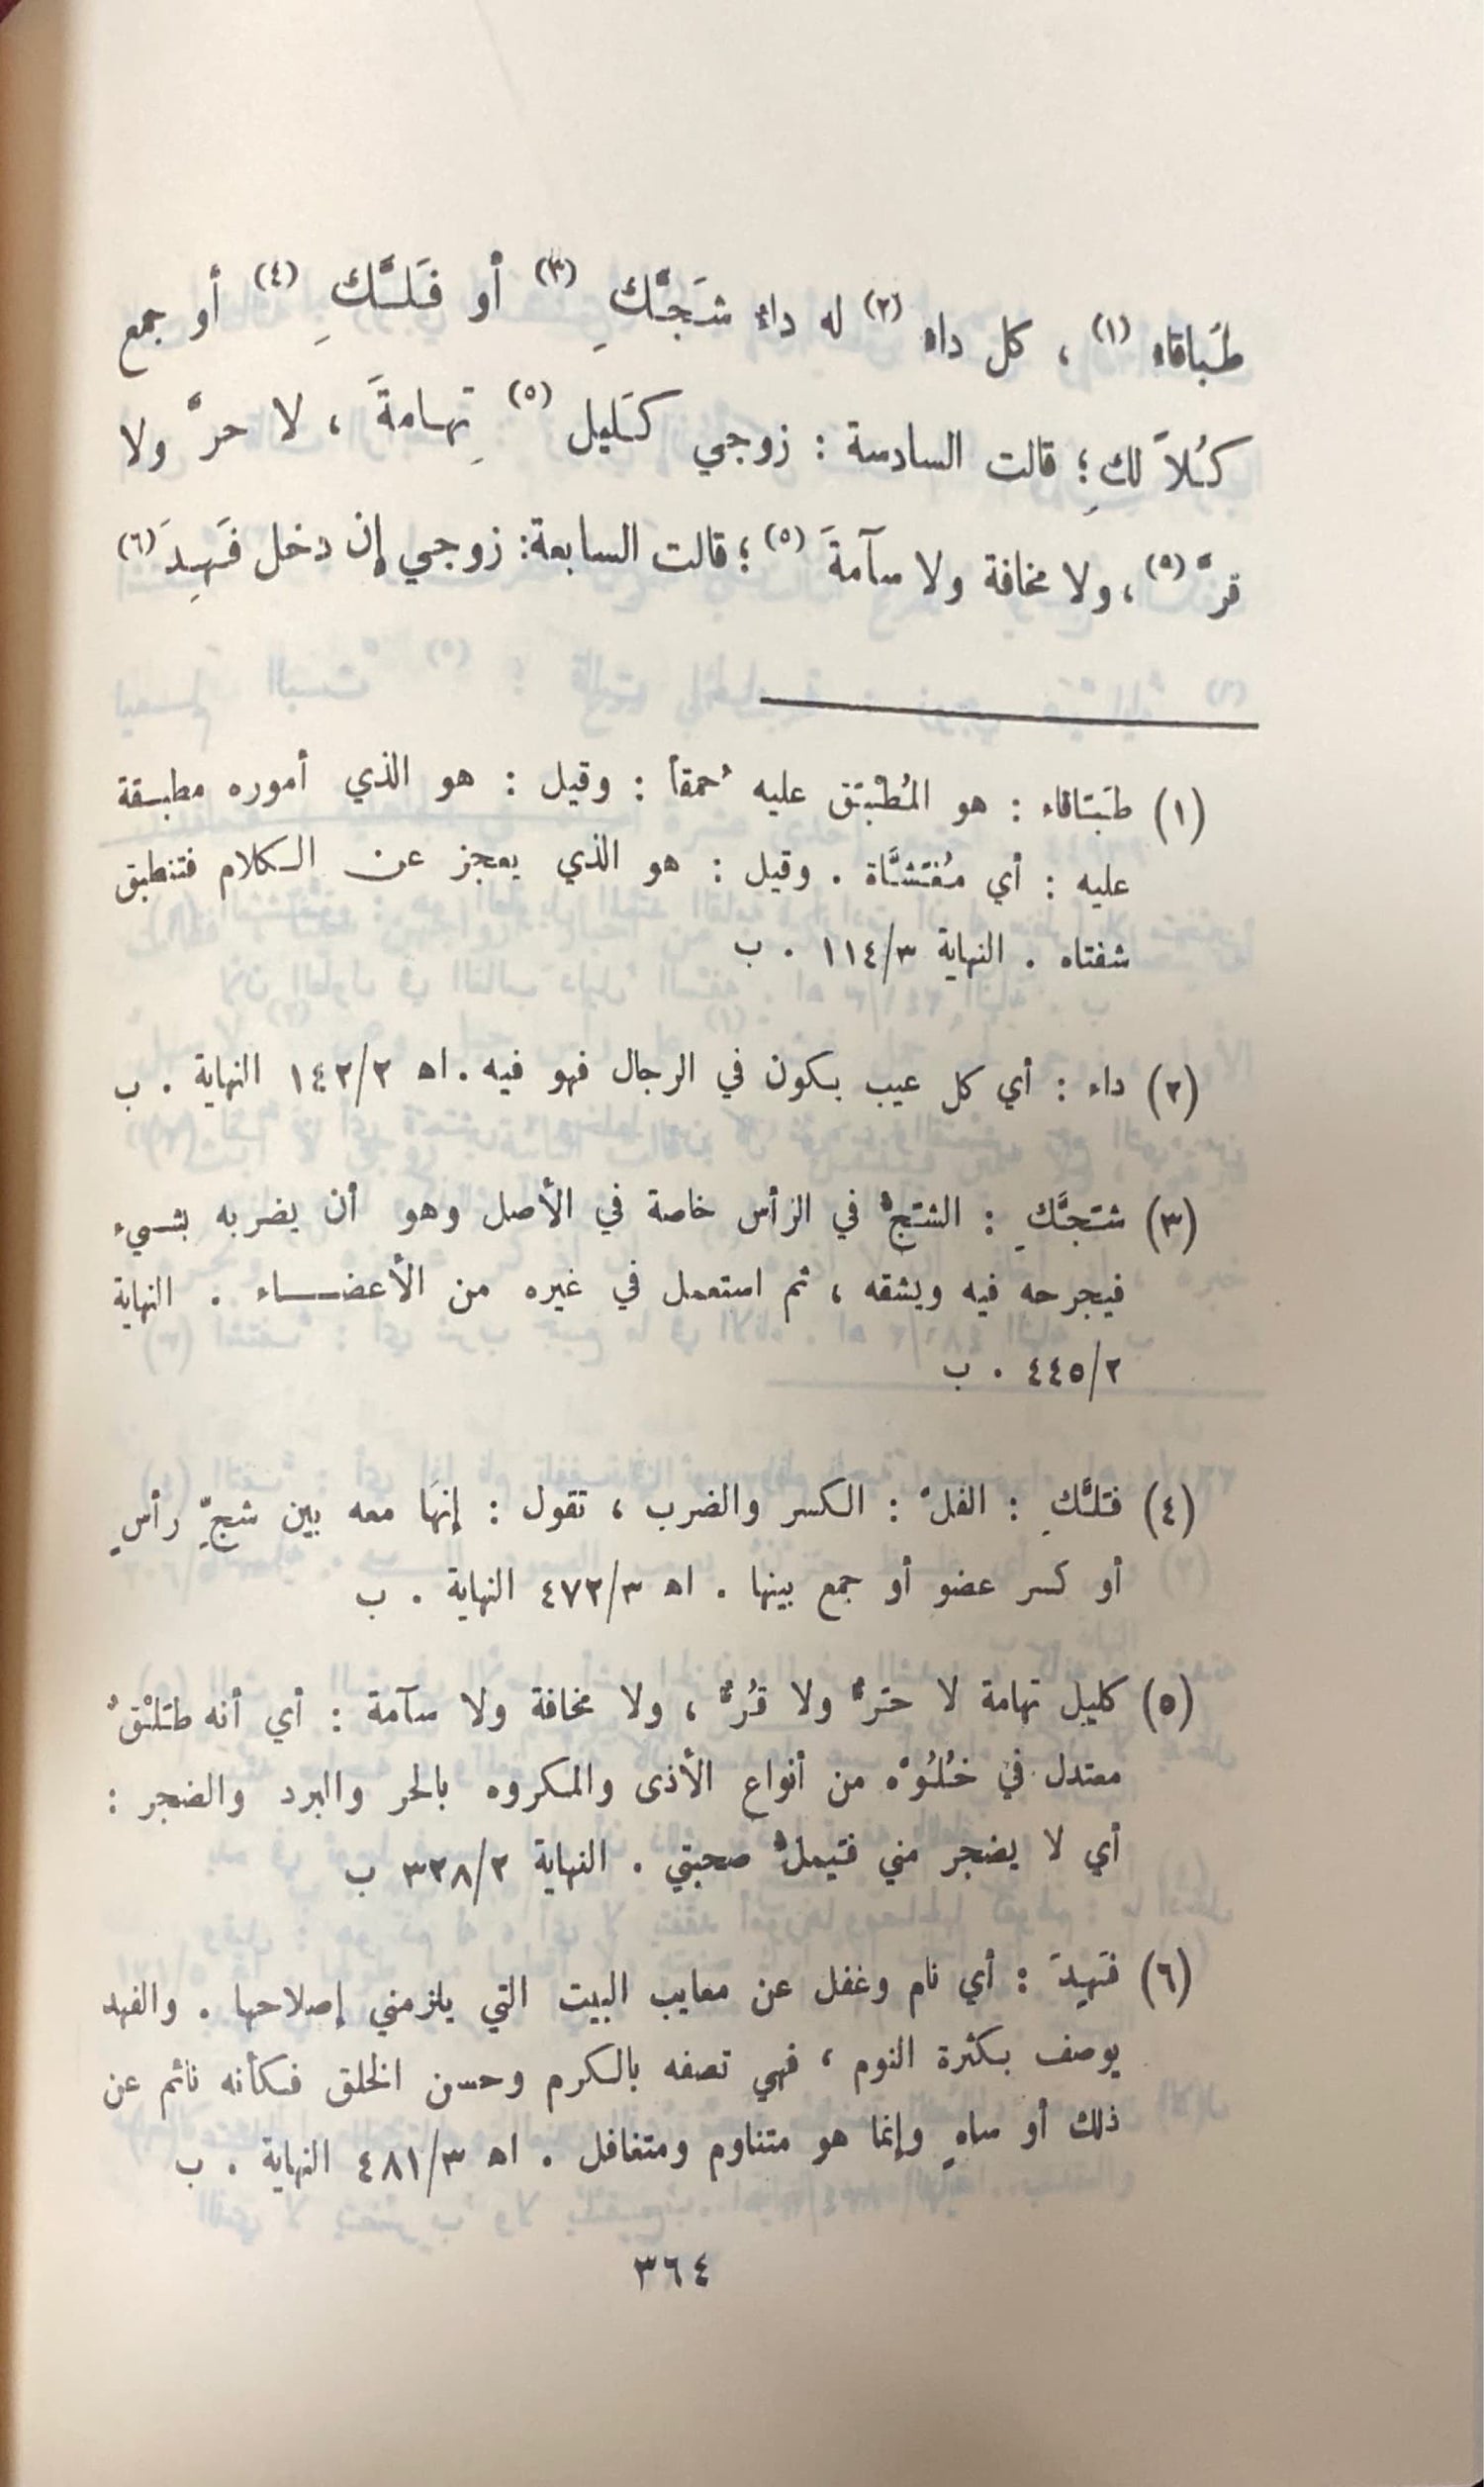 طَبَاقاء (١) ، كل داء (٢) له داءٌ شَجَّكِ (٣) أو فَلَّكِ (٤) أو جمع
كُلاً لكِ؛ قالت السادسة : زوجي كَليل (٥) تِهامةَ ، لا حرٌّ ولا
قرٌّ (٥) ، ولا مخافة ولا سآمةَ (٥) ؛ قالت السابعة: زوجي إن دخل فَهِدَ (٦)
(١) طَبَاقاء : هو المُطْبَق عليه حُمقاً : وقيل : هو الذي أموره مطبقة
عليه : أي مُغَشَّاة . وقيل : هو الذي يعجز عن الكلام فتنطبق
شفتاه . النهاية ١١٤/٣ . ب
(٢) داء : أي كل عيب يكون في الرجال فهو فيه . اه ١٤٢/٢ النهاية . ب
(٣) شَجَّكِ : الشَّجُّ في الرأس خاصة في الأصل وهو أن يضربه بشيء
فيجرحه فيه ويشقه ، ثم استعمل في غيره من الأعضاء . النهاية
٤٤٥/٢ . ب
(٤) فَلَّكِ : الفلُّ : الكسر والضرب ، تقول : إنهَا معه بين شجِّ رأسٍ
أو كسر عضو أو جمع بينها . اه ٤٧٢/٣ النهاية . ب
(٥) كليل تهامة لا حَرٌّ ولا قُرٌّ ، ولا مخافة ولا سآمة : أي أنه طَلْقٌ
معتدل في خُلُوِّه من أنواع الأذى والمكروه بالحر والبرد والضجر :
أي لا يضجر مني فَيملُّ صحبتي . النهاية ٣٢٨/٢ ب
(٦) فَهِدَ : أي نام وغفل عن معايب البيت التي يلزمني إصلاحها . والفهد
يوصف بكثرة النوم ، فهي تصفه بالكرم وحسن الخلق فكأنه نائم عن
ذلك أو ساهٍ وإنما هو متناوم ومتغافل . اه ٤٨١/٣ النهاية . ب
٣٦٤